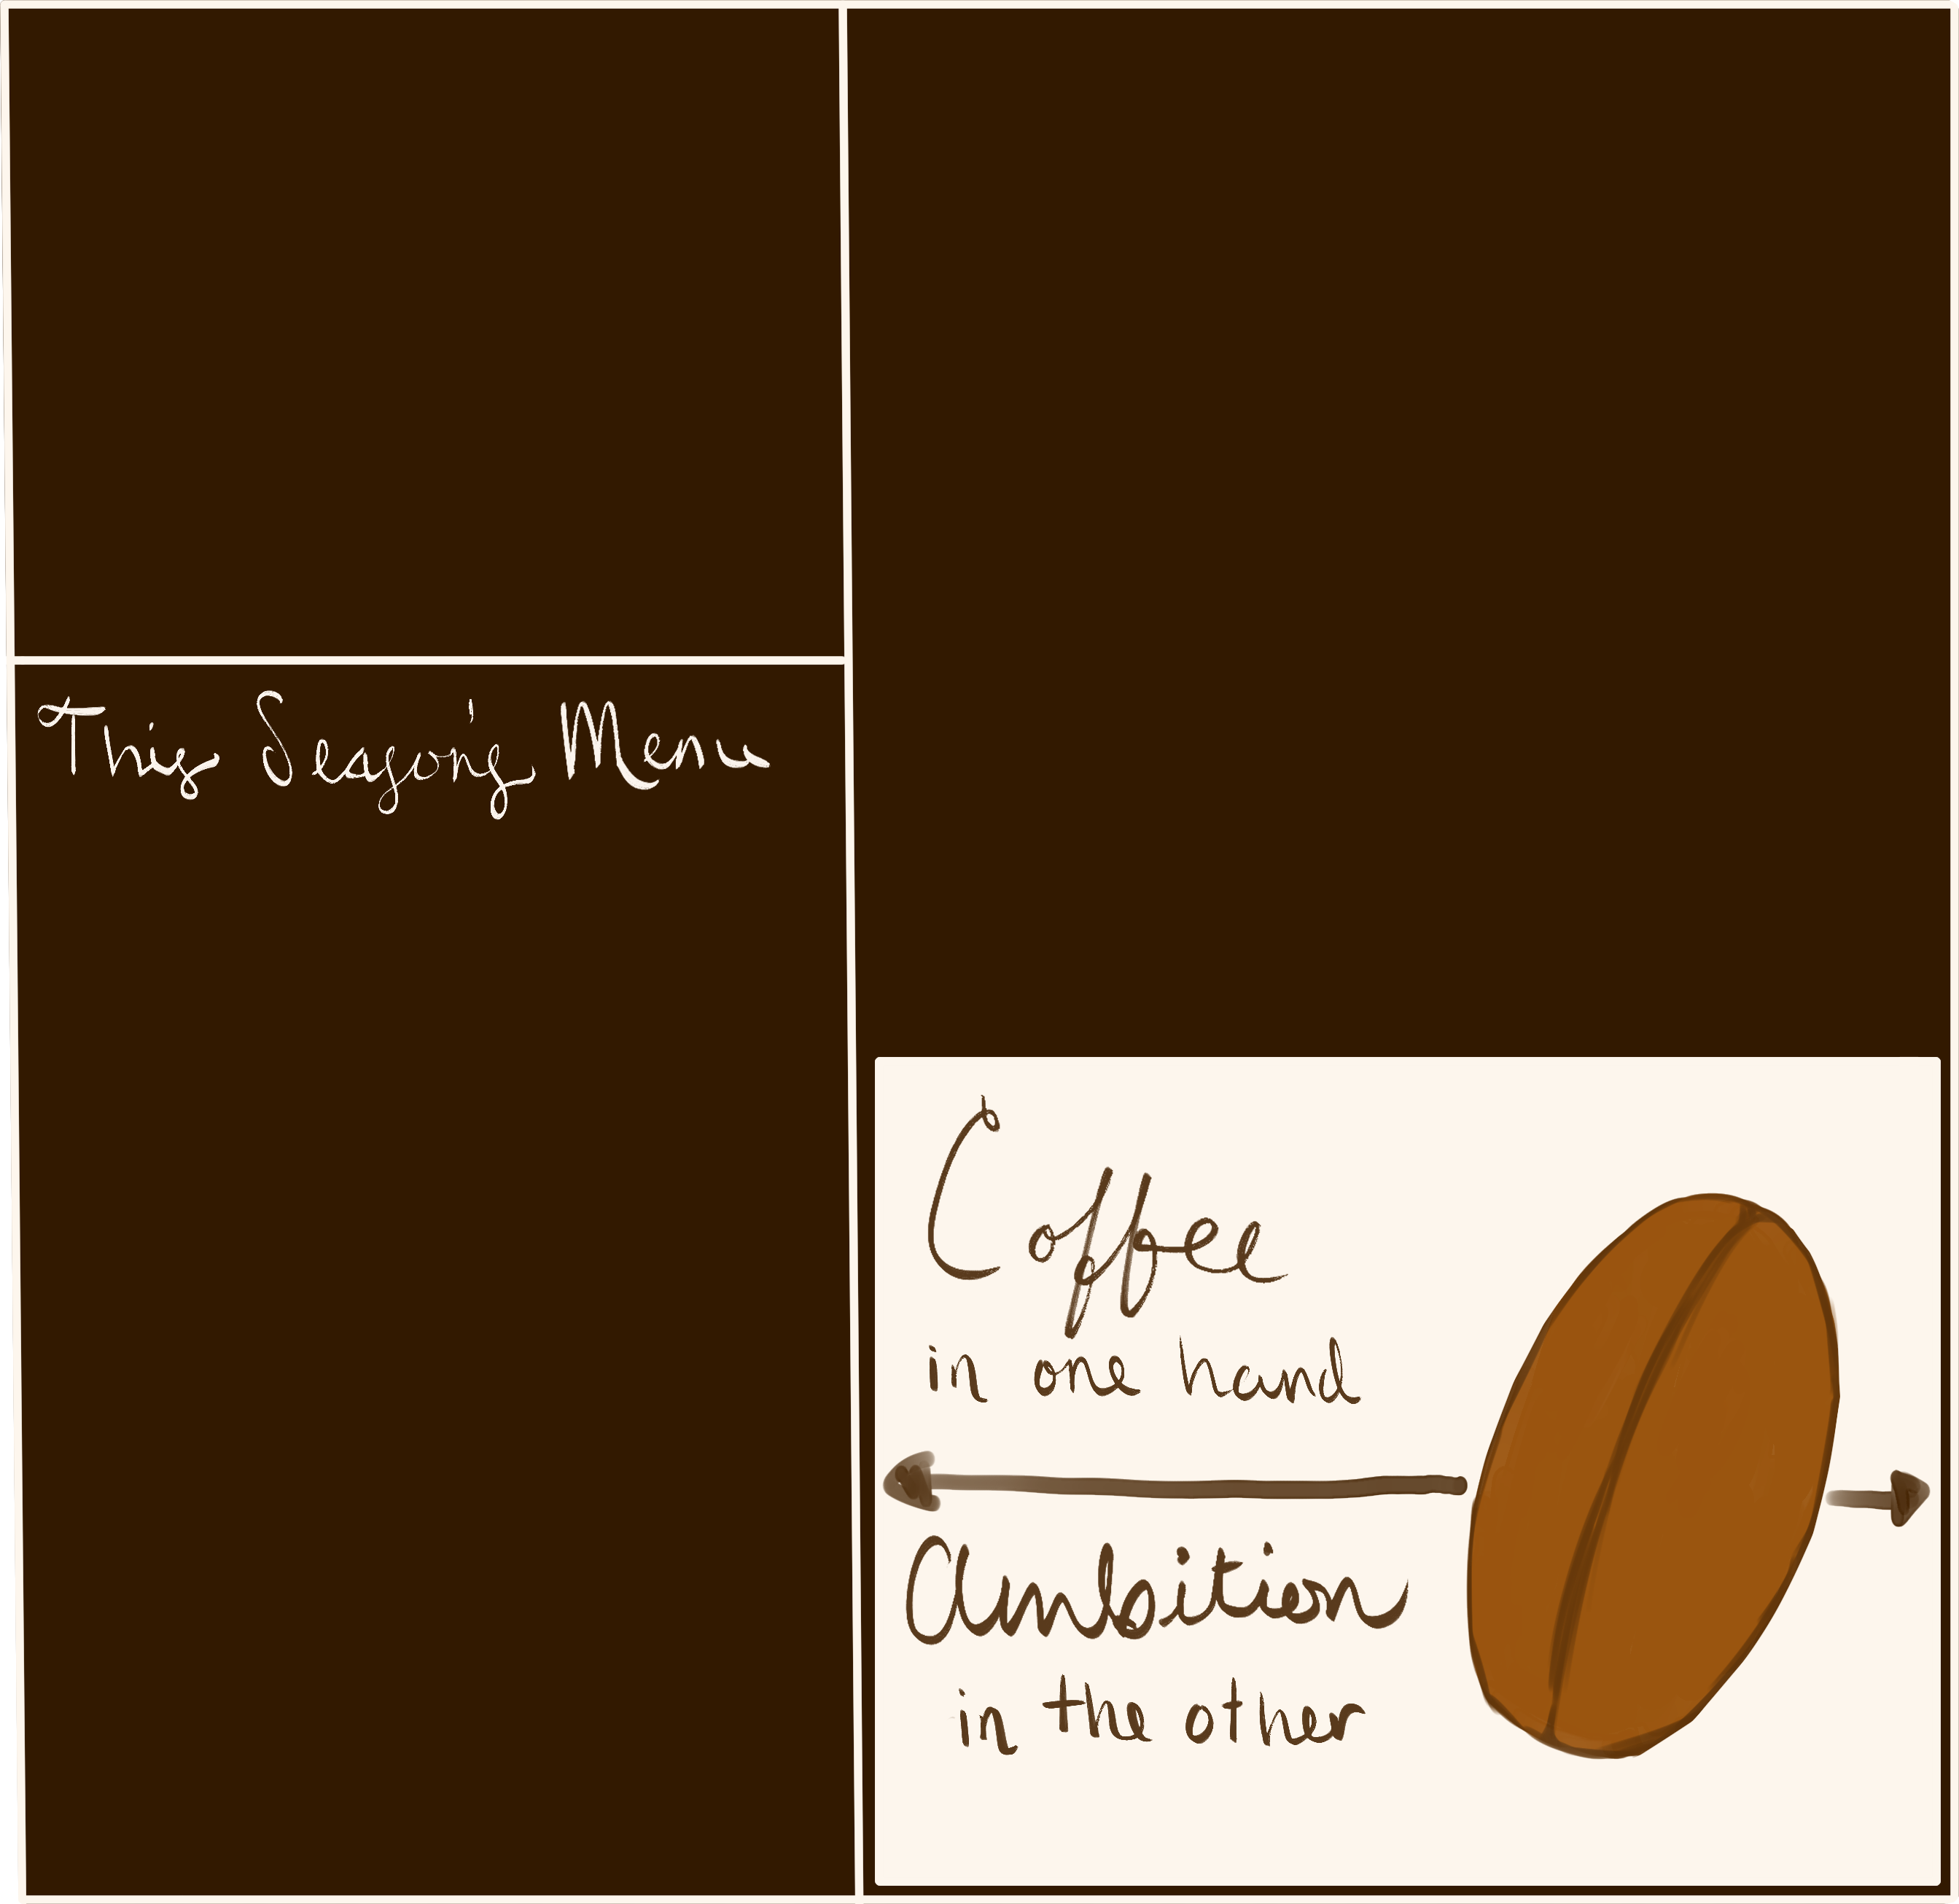 This Season's Menu
Coffee
in one hand
Ambition
in the other